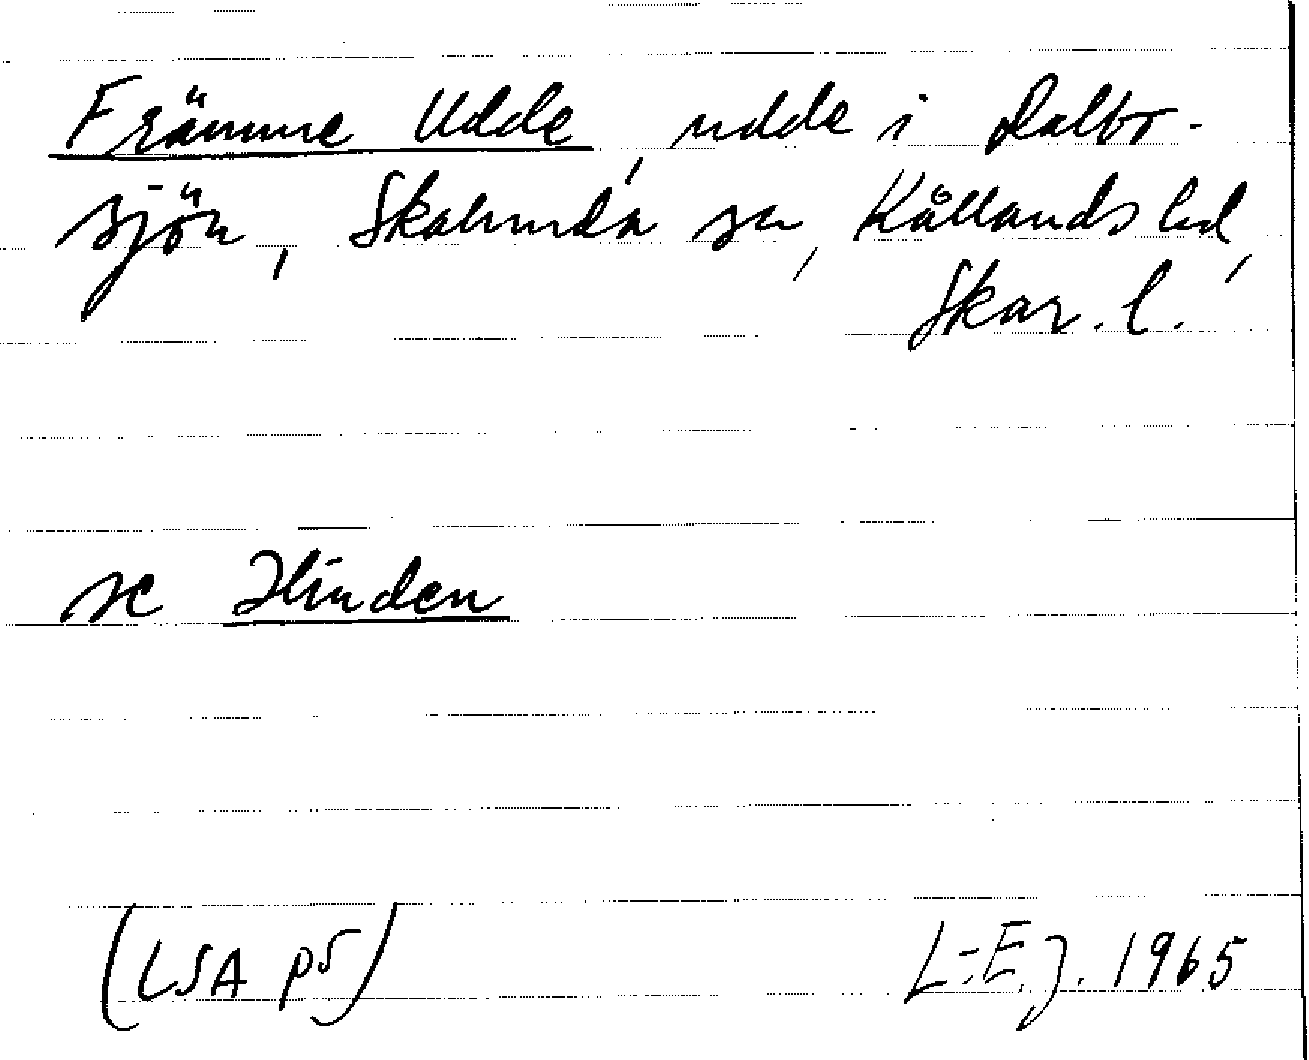 Främme Udde, udde i Dalbo-
sjön, Skalunda sn, Kållands hd,
Skar. l.
se Hinden
(LSA p5) L-E. J. 1965